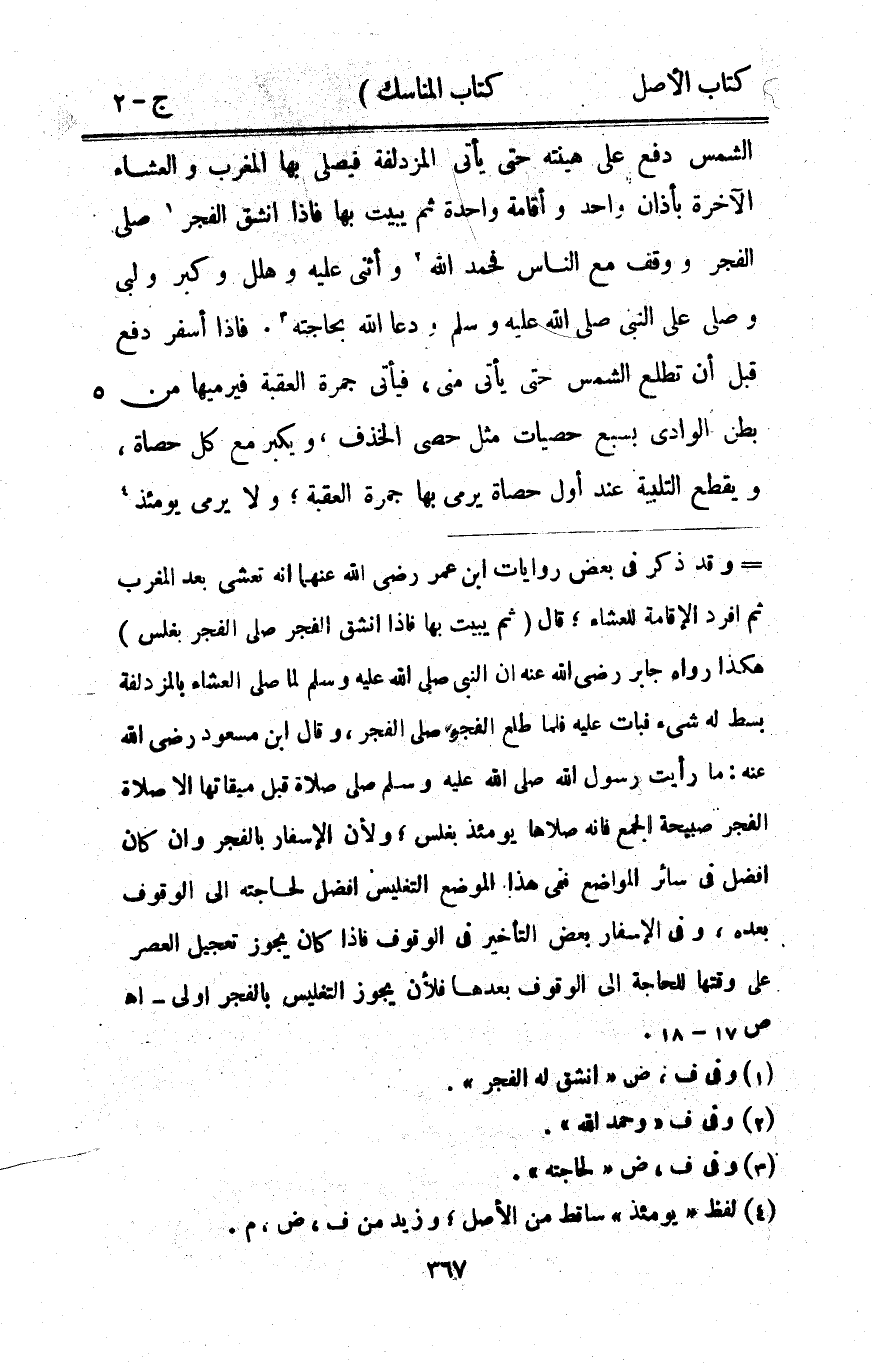 كتاب الأصل كتاب المناسك ) ج – ٢
الشمس دفع على هينته حتى يأتى المزدلفة فيصلى بها المغرب و العشاء
الآخرة بأذان واحد و أقامة واحدة ثم يبيت بها فاذا انشق الفجر ١ صلى
الفجر و وقف مع الناس فحمد الله ٢ و أثنى عليه و هلل و كبر و لبى
و صلى على النبى صلى الله عليه و سلم و دعا الله بحاجته ٣ . فاذا أسفر دفع
قبل أن تطلع الشمس حتى يأتى منى ، فيأتى جمرة العقبة فيرميها من ٥
بطن الوادى بسبع حصيات مثل حصى الخذف ، و يكبر مع كل حصاة ،
و يقطع التلبية عند أول حصاة يرمى بها جمرة العقبة ؛ و لا يرمى يومئذ ٤
= و قد ذكر فى بعض روايات ابن عمر رضى الله عنهما انه تعشى بعد المغرب
ثم افرد الإقامة للعشاء ؛ قال ( ثم يبيت بها فاذا انشق الفجر صلى الفجر بغلس )
هكذا رواه جابر رضى الله عنه ان النبى صلى الله عليه و سلم لما صلى العشاء بالمزدلفة
بسط له شىء فبات عليه فلما طلع الفجر صلى الفجر ، و قال ابن مسعود رضى الله
عنه : ما رأيت رسول الله صلى الله عليه و سلم صلى صلاة قبل ميقاتها الا صلاة
الفجر صبيحة الجمع فانه صلاها يومئذ بغلس ؛ و لأن الإسفار بالفجر و ان كان
افضل فى سائر المواضع ففى هذا الموضع التغليس افضل لحاجته الى الوقوف
بعده ، و فى الإسفار بعض التأخير فى الوقوف فاذا كان يجوز تعجيل العصر
على وقتها للحاجة الى الوقوف بعدها فلأن يجوز التغليس بالفجر اولى – اه
ص ١٧ – ١٨ .
(١) و فى ف ، ض « انشق له الفجر » .
(٢) و فى ف « و حمد الله » .
(٣) و فى ف ، ض « لحاجته » .
(٤) لفظ « يومئذ » ساقط من الأصل ؛ و زيد من ف ، ض ، م .
٣٦٧